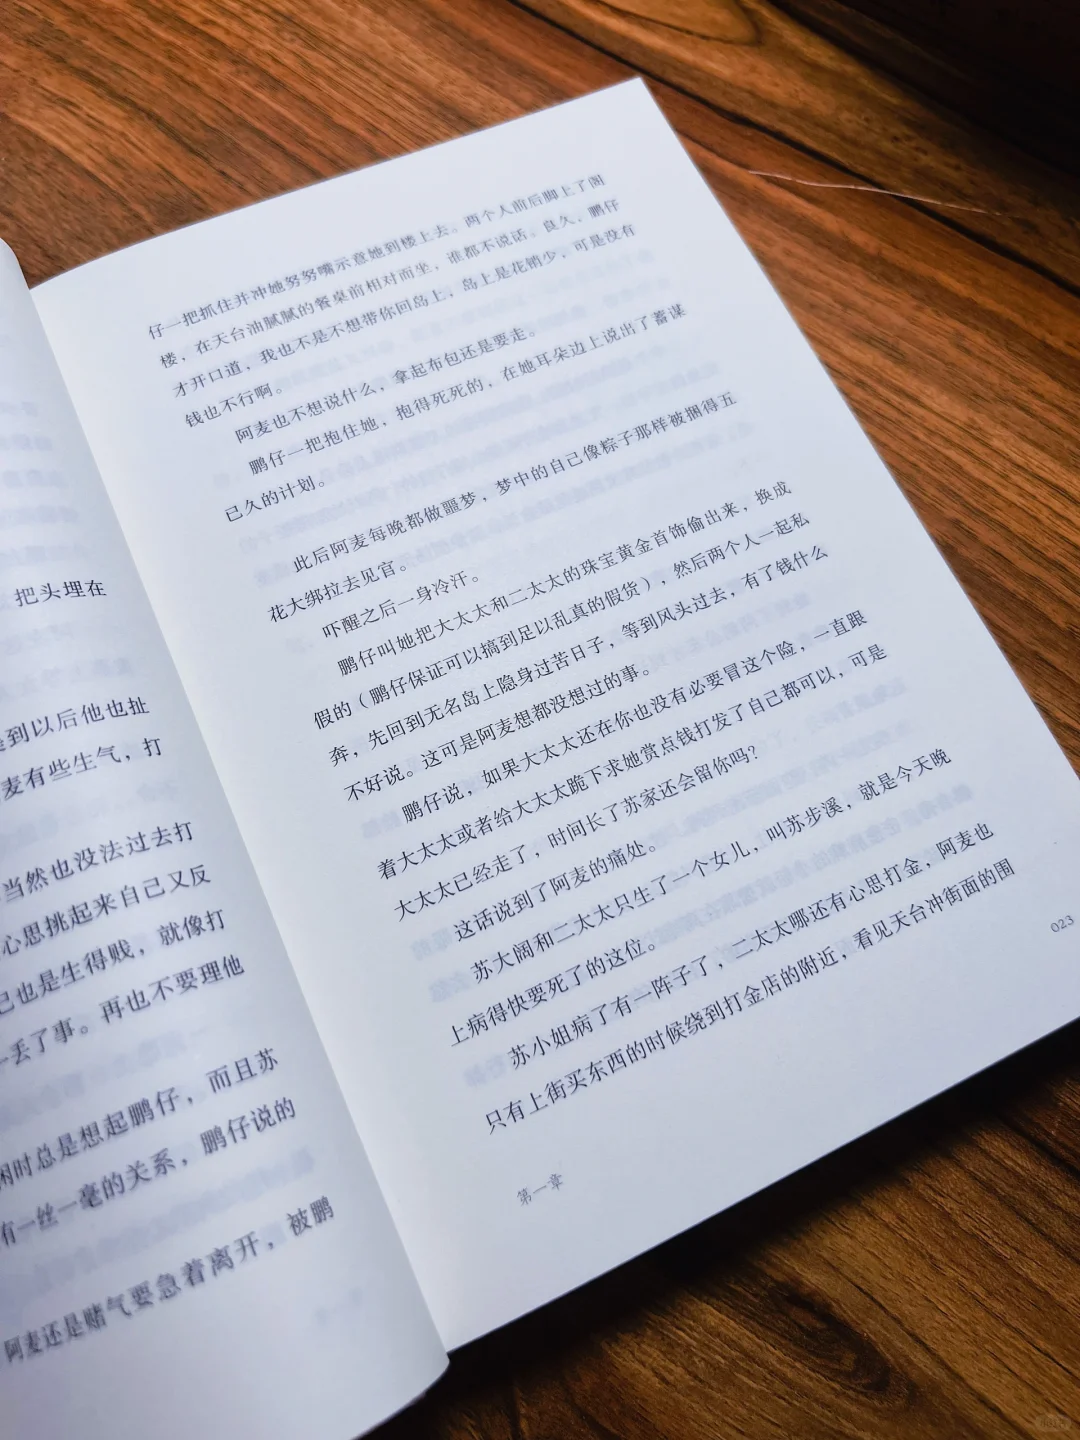 把头埋在
到以后他也扯
麦有些生气，打
当然也没法过去打
心思挑起来自己又反
己也是生得贱，就像打
丢了事。再也不要理他
闲时总是想起鹏仔，而且苏
有一丝一毫的关系，鹏仔说的
阿麦还是赌气要急着离开，被鹏
仔一把抓住并冲她努努嘴示意她到楼上去。两个人前后脚上了阁
楼，在天台油腻腻的餐桌前相对而坐，谁都不说话。良久，鹏仔
才开口道，我也不是不想带你回岛上，岛上是花销少，可是没有
钱也不行啊。
阿麦也不想说什么，拿起布包还是要走。
鹏仔一把抱住她，抱得死死的，在她耳朵边上说出了蓄谋
已久的计划。
此后阿麦每晚都做噩梦，梦中的自己像粽子那样被捆得五
花大绑拉去见官。
吓醒之后一身冷汗。
鹏仔叫她把大太太和二太太的珠宝黄金首饰偷出来，换成
假的（鹏仔保证可以搞到足以乱真的假货），然后两个人一起私
奔，先回到无名岛上隐身过苦日子，等到风头过去，有了钱什么
不好说。这可是阿麦想都没想过的事。
鹏仔说，如果大太太还在你也没有必要冒这个险，一直跟
着大太太或者给大太太跪下求她赏点钱打发了自己都可以，可是
大太太已经走了，时间长了苏家还会留你吗？
这话说到了阿麦的痛处。
苏大阔和二太太只生了一个女儿，叫苏步溪，就是今天晚
上病得快要死了的这位。
苏小姐病了有一阵子了，二太太哪还有心思打金，阿麦也
只有上街买东西的时候绕到打金店的附近，看见天台冲街面的围
第一章
023